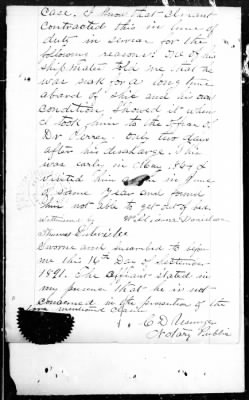 Case. I know that
contracted this in line of
duty in service for the
following reasons: 1st
Shipmates told me that he
was sick for a long time
aboard of ship and his
condition showed it when
I took him to the office of
Dr only two days
after his discharge. This
was early in May 1864 &
visited him in June
of same year and found
him not able to get out of bed
Witnessed by William Donelson
Thomas
Sworn and subscribed to before
me this 14th Day of September
1891. The affiant stated in
my presence that he is not
concerned in the prosecution of the
above mentioned claim
C D
Notary Public